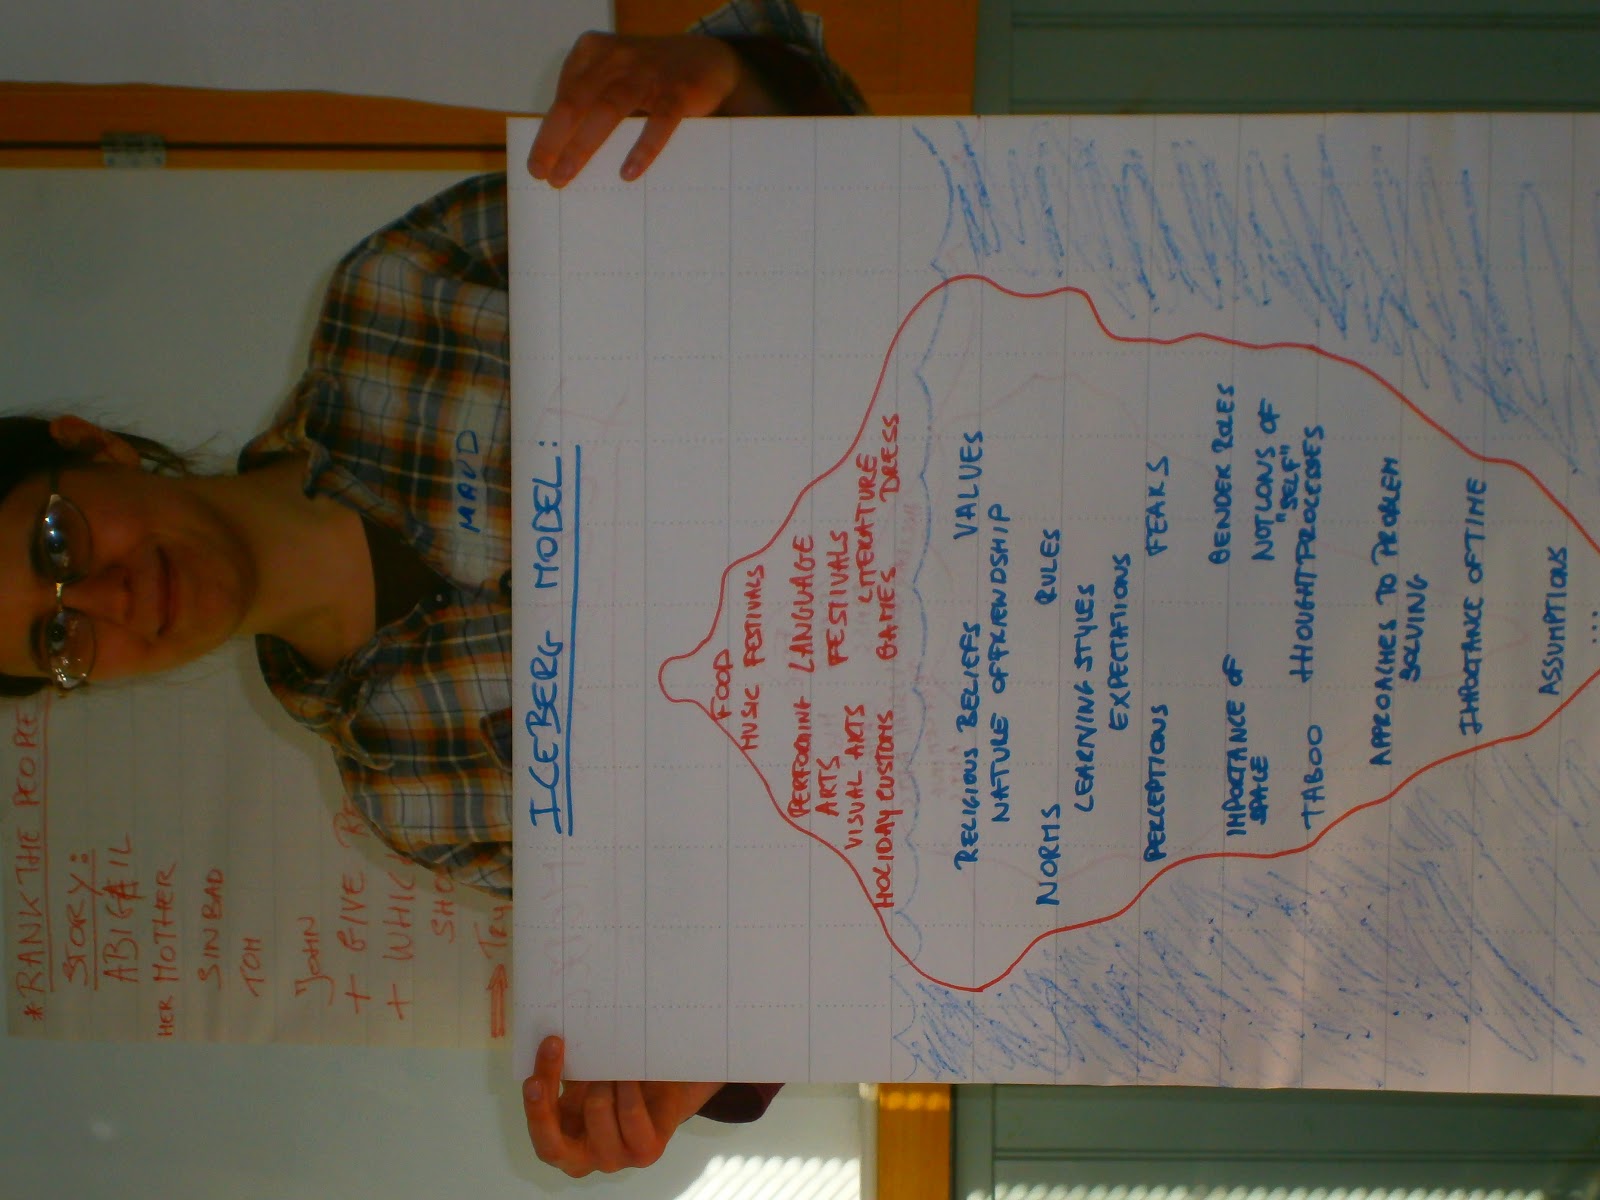 *RANK THE PEOPLE
STORY:
ABIGAIL
HER MOTHER
SINBAD
TOM
JOHN
+ GIVE
+ WHIC
SHO
⇒ TRY
MAUD
ICEBERG MODEL:
FOOD
MUSIC FESTIVALS
PERFORMING LANGUAGE
ARTS FESTIVALS
VISUAL ARTS LITERATURE
HOLIDAY CUSTOMS GAMES DRESS
RELIGIOUS BELIEFS VALUES
NATURE OF FRIENDSHIP
NORMS RULES
LEARNING STYLES
EXPECTATIONS
PERCEPTIONS FEARS
IMPORTANCE OF SPACE GENDER ROLES
NOTIONS OF "SELF"
TABOO THHOUGHT PROCESSES
APPROACHES TO PROBLEM
SOLVING
IMPORTANCE OF TIME
ASSUMPTIONS
...